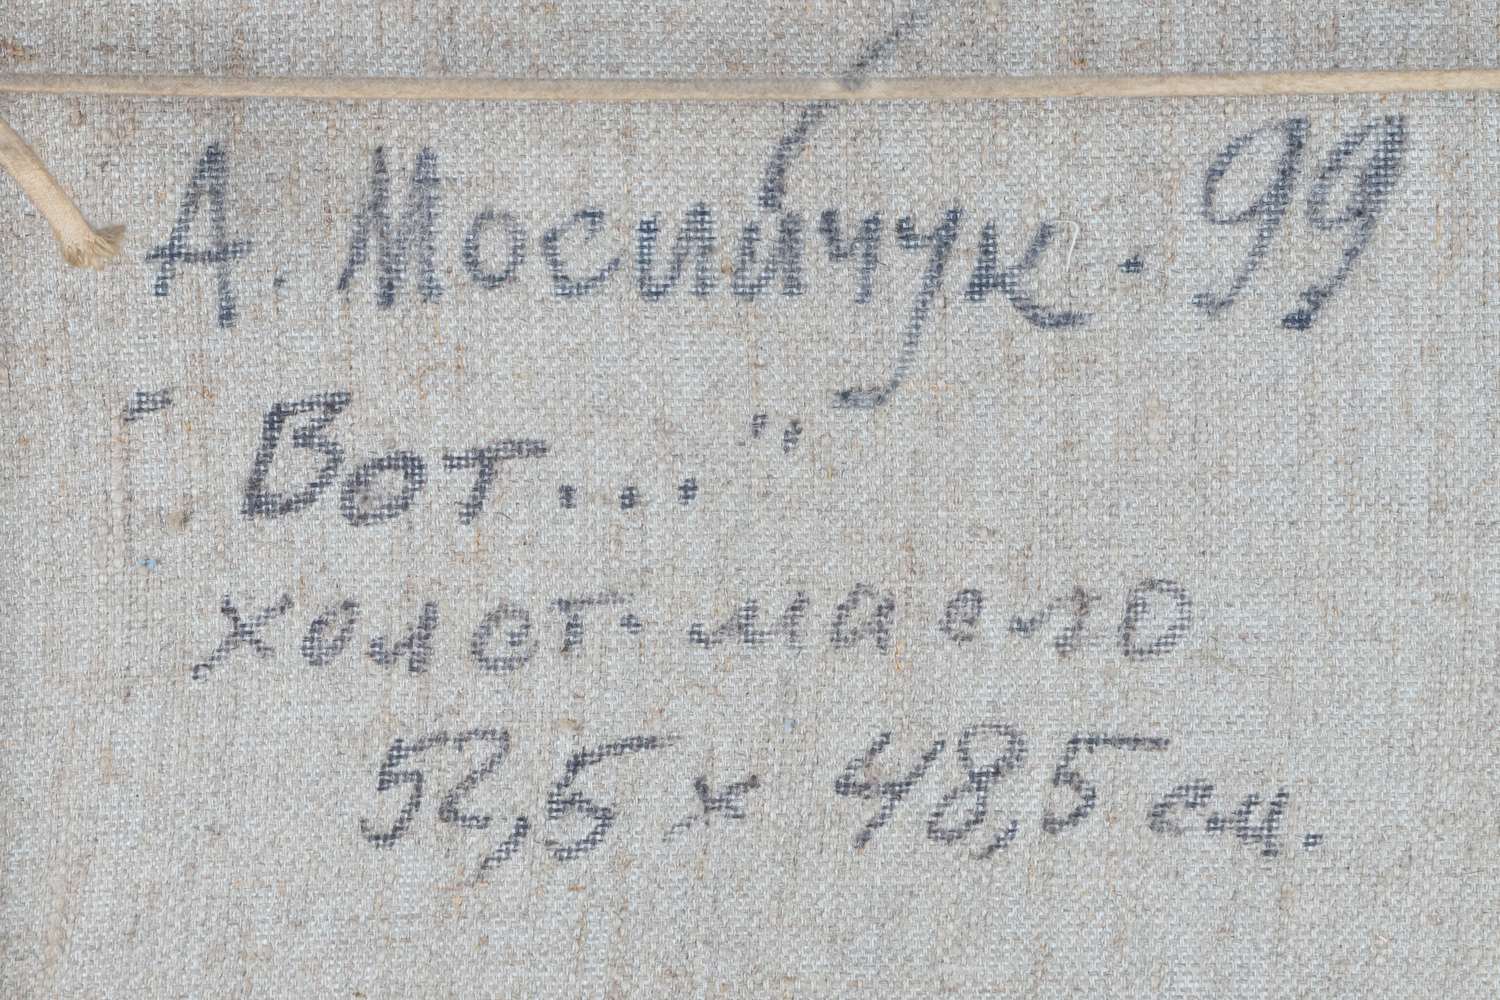 А. Мосийчук. 99
"Вот..."
холст. масло
52,5 х 48,5 см.